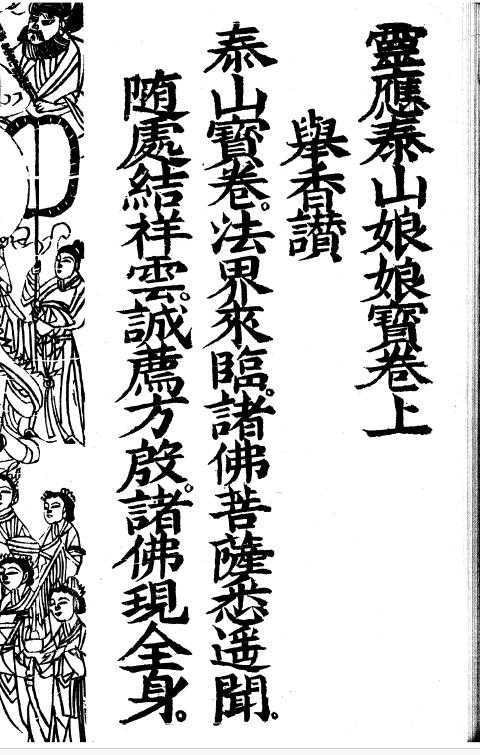 靈應泰山娘娘寶卷上
舉香讃
泰山寶卷。法界來臨。諸佛菩薩悉遥聞。
随處結祥雲。誠薦方殷。諸佛現全身。